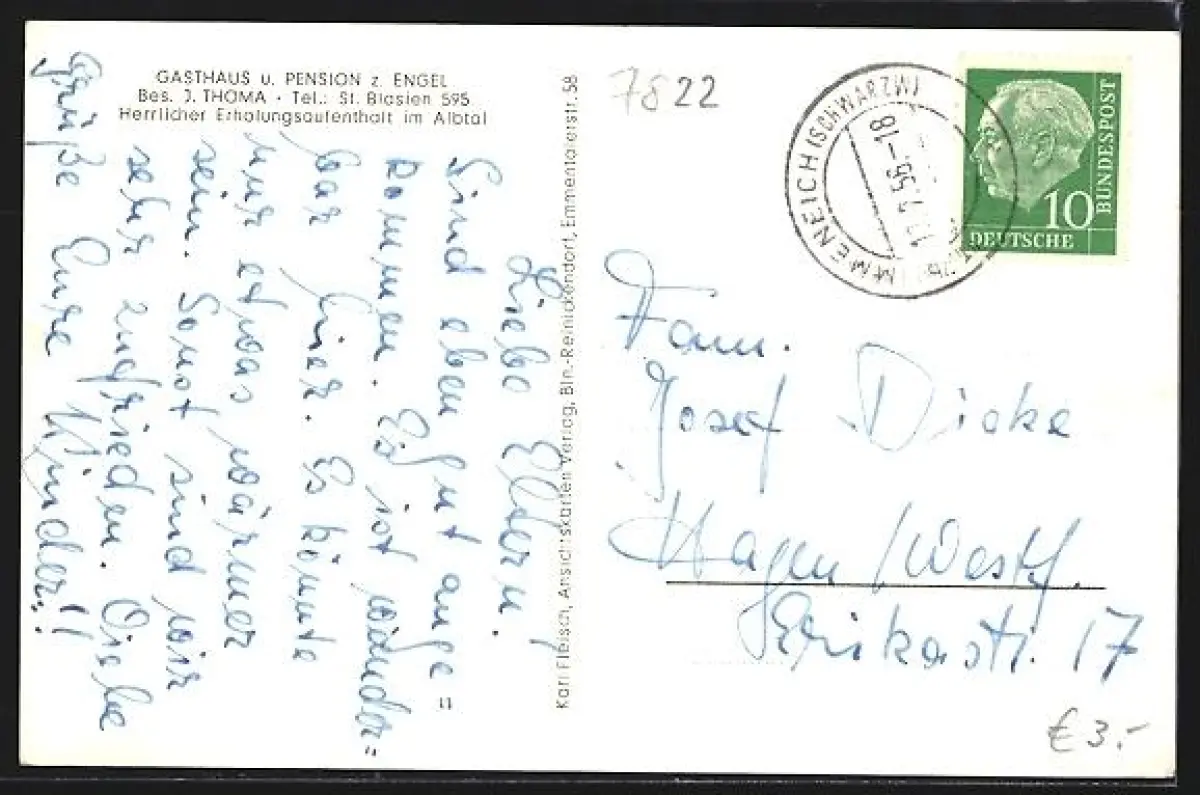 GASTHAUS u. PENSION z. ENGEL
Bes. J. THOMA · Tel.: St. Blasien 595
Herrlicher Erholungsaufenthalt im Albtal
Liebe Eltern!
Sind eben gut ange=
kommen. Es ist wunder=
bar hier. Es könnte
nur etwas wärmer
sein. Sonst sind wir
sehr zufrieden.
Grüße Eure Kinder!!
Karl Fleisch, Ansichtskarten Verlag, Bln.-Reinickendorf, Emmentalerstr. 58
7822
IMMENEICH (SCHWARZW)
55-18
10
DEUTSCHE
BUNDESPOST
Fam.
Josef Dicke
Hagen/Westf.
Erikastr. 17
€ 3.-